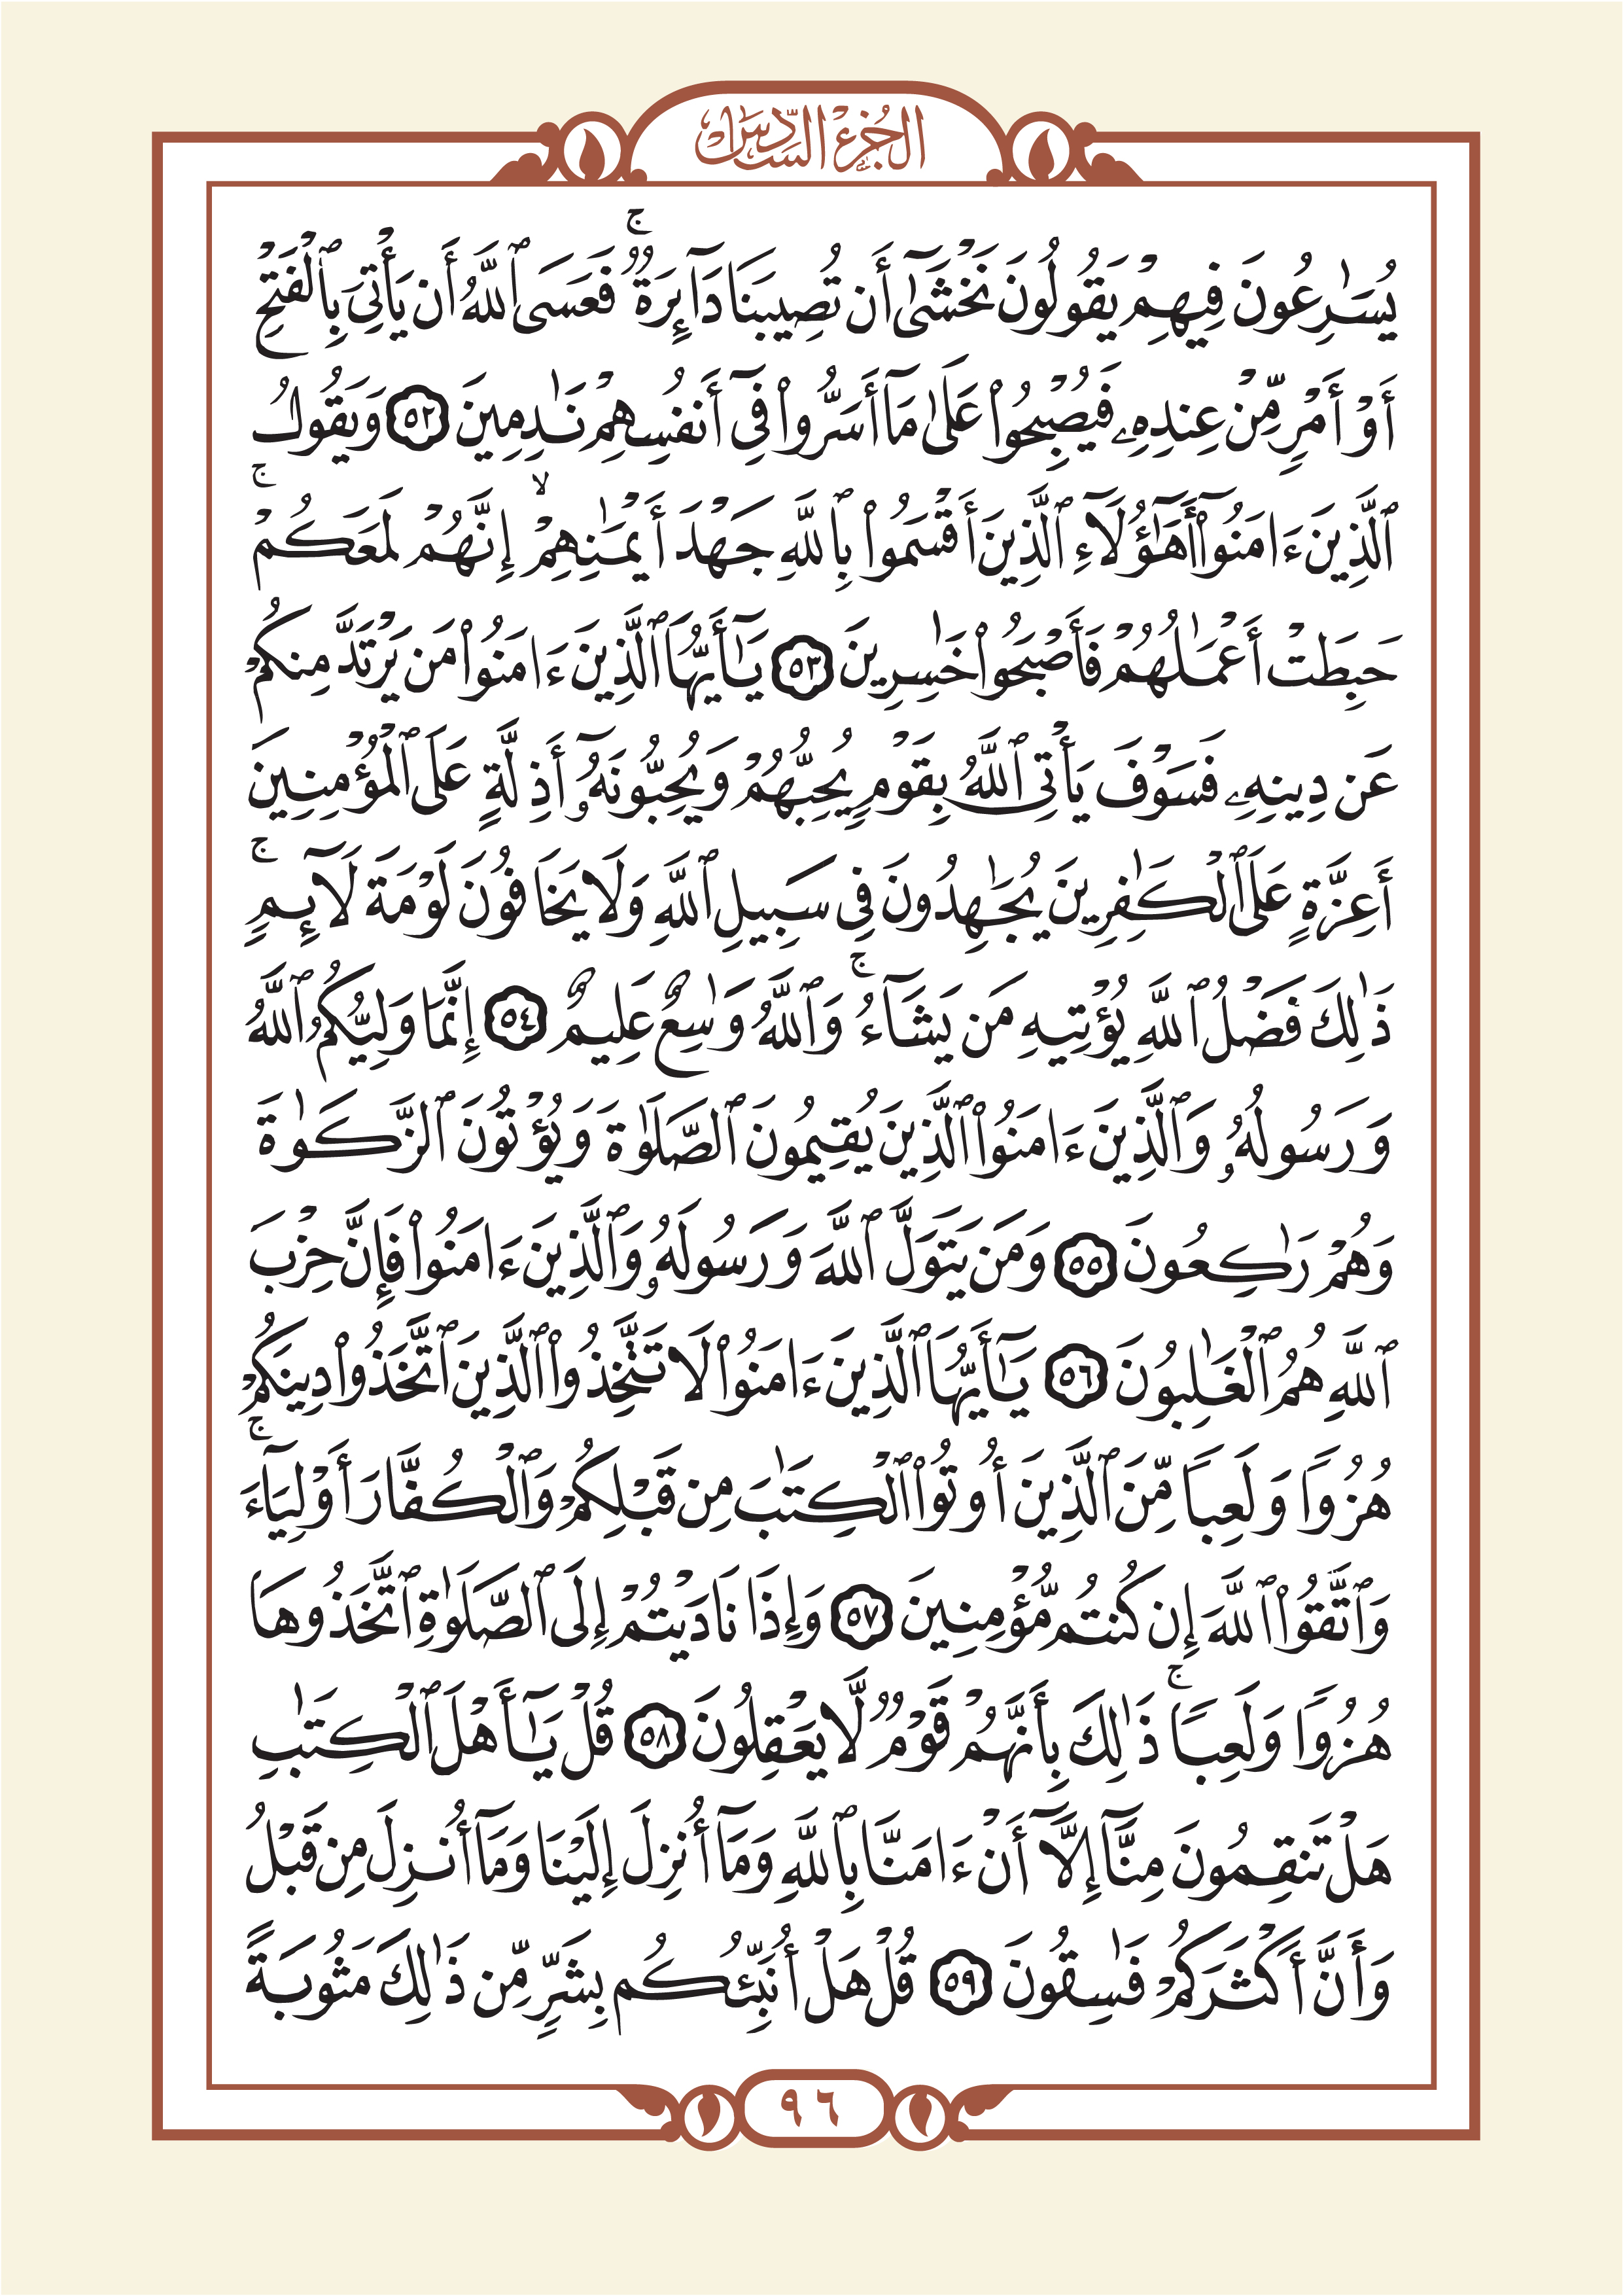 الجُزْءُ السَّادِسُ
يُسَٰرِعُونَ فِيهِمْ يَقُولُونَ نَخْشَىٰٓ أَن تُصِيبَنَا دَآئِرَةٌۭ ۚ فَعَسَى ٱللَّهُ أَن يَأْتِىَ بِٱلْفَتْحِ
أَوْ أَمْرٍۢ مِّنْ عِندِهِۦ فَيُصْبِحُوا۟ عَلَىٰ مَآ أَسَرُّوا۟ فِىٓ أَنفُسِهِمْ نَٰدِمِينَ ٥٢ وَيَقُولُ
ٱلَّذِينَ ءَامَنُوٓا۟ أَهَٰٓؤُلَآءِ ٱلَّذِينَ أَقْسَمُوا۟ بِٱللَّهِ جَهْدَ أَيْمَٰنِهِمْ ۙ إِنَّهُمْ لَمَعَكُمْ ۚ
حَبِطَتْ أَعْمَٰلُهُمْ فَأَصْبَحُوا۟ خَٰسِرِينَ ٥٣ يَٰٓأَيُّهَا ٱلَّذِينَ ءَامَنُوا۟ مَن يَرْتَدَّ مِنكُمْ
عَن دِينِهِۦ فَسَوْفَ يَأْتِى ٱللَّهُ بِقَوْمٍۢ يُحِبُّهُمْ وَيُحِبُّونَهُۥٓ أَذِلَّةٍ عَلَى ٱلْمُؤْمِنِينَ
أَعِزَّةٍ عَلَى ٱلْكَٰفِرِينَ يُجَٰهِدُونَ فِى سَبِيلِ ٱللَّهِ وَلَا يَخَافُونَ لَوْمَةَ لَآئِمٍۢ ۚ
ذَٰلِكَ فَضْلُ ٱللَّهِ يُؤْتِيهِ مَن يَشَآءُ ۚ وَٱللَّهُ وَٰسِعٌ عَلِيمٌ ٥٤ إِنَّمَا وَلِيُّكُمُ ٱللَّهُ
وَرَسُولُهُۥ وَٱلَّذِينَ ءَامَنُوا۟ ٱلَّذِينَ يُقِيمُونَ ٱلصَّلَوٰةَ وَيُؤْتُونَ ٱلزَّكَوٰةَ
وَهُمْ رَٰكِعُونَ ٥٥ وَمَن يَتَوَلَّ ٱللَّهَ وَرَسُولَهُۥ وَٱلَّذِينَ ءَامَنُوا۟ فَإِنَّ حِزْبَ
ٱللَّهِ هُمُ ٱلْغَٰلِبُونَ ٥٦ يَٰٓأَيُّهَا ٱلَّذِينَ ءَامَنُوا۟ لَا تَتَّخِذُوا۟ ٱلَّذِينَ ٱتَّخَذُوا۟ دِينَكُمْ
هُزُوًۭا وَلَعِبًۭا مِّنَ ٱلَّذِينَ أُوتُوا۟ ٱلْكِتَٰبَ مِن قَبْلِكُمْ وَٱلْكُفَّارَ أَوْلِيَآءَ ۚ
وَٱتَّقُوا۟ ٱللَّهَ إِن كُنتُم مُّؤْمِنِينَ ٥٧ وَإِذَا نَادَيْتُمْ إِلَى ٱلصَّلَوٰةِ ٱتَّخَذُوهَا
هُزُوًۭا وَلَعِبًۭا ۚ ذَٰلِكَ بِأَنَّهُمْ قَوْمٌۭ لَّا يَعْقِلُونَ ٥٨ قُلْ يَٰٓأَهْلَ ٱلْكِتَٰبِ
هَلْ تَنقِمُونَ مِنَّآ إِلَّآ أَنْ ءَامَنَّا بِٱللَّهِ وَمَآ أُنزِلَ إِلَيْنَا وَمَآ أُنزِلَ مِن قَبْلُ
وَأَنَّ أَكْثَرَكُمْ فَٰسِقُونَ ٥٩ قُلْ هَلْ أُنَبِّئُكُم بِشَرٍّۢ مِّن ذَٰلِكَ مَثُوبَةً
٩٦